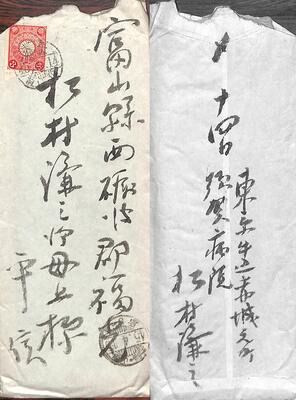 富山縣西礪波郡福光
松村謙三御母上様
平信
東京牛込赤城元町
十四日 病院
松村謙三